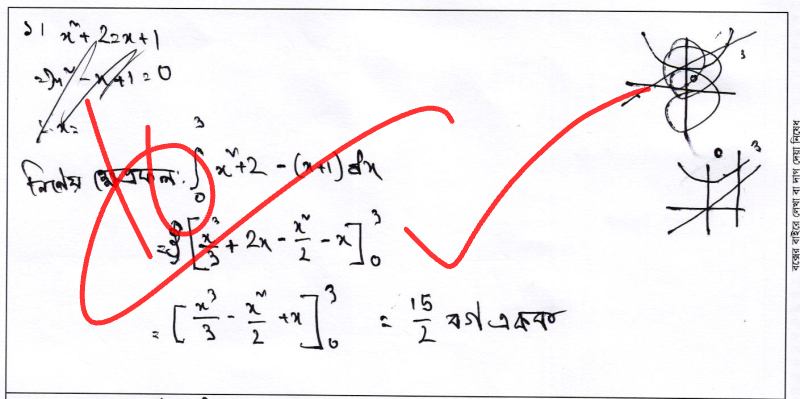 ১। x² + 2 = x + 1
=> x² - x + 1 = 0
∴ x =
নির্ণেয় ক্ষেত্রফল: ∫₀³ x² + 2 - (x+1) dx
= [x³/3 + 2x - x²/2 - x]₀³
= [x³/3 - x²/2 + x]₀³ = 15/2 বর্গ একক
3
0 3
বক্সের বাইরে লেখা বা দাগ দেয়া নিষেধ